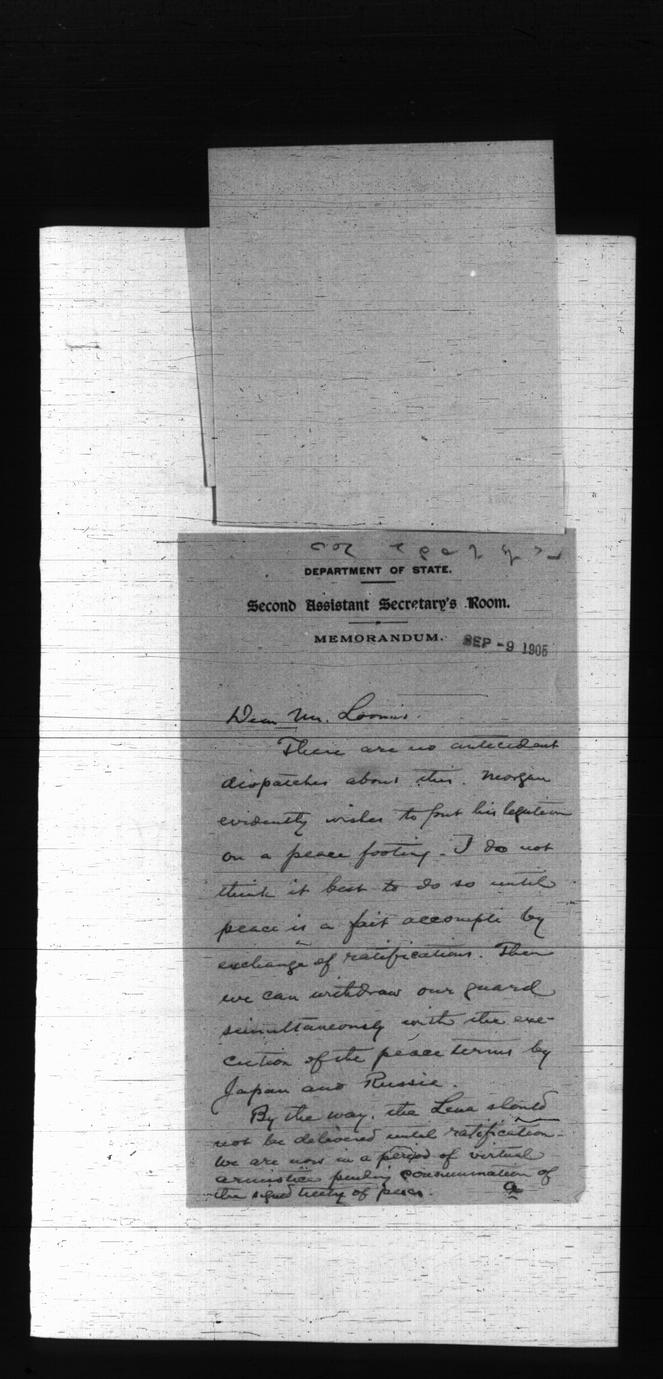 DEPARTMENT OF STATE.
Second Assistant Secretary's Room.
MEMORANDUM.
SEP -9 1905
Dear Mr. Loomis.
There are no antecedent
dispatches about this. Morgan
evidently wishes to put his legation
on a peace footing. I do not
think it best to do so until
peace is a fait accompli by
exchange of ratifications. Then
we can withdraw our guard
simultaneously with the exe-
cution of the peace terms by
Japan and Russia.
By the way, the Lena should
not be delivered until ratification.
We are now in a period of virtual
armistice pending consummation of
the signed treaty of peace.